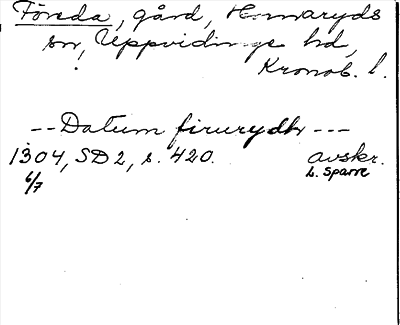 Föreda, gård, Hemmaryds
sn, Uppvidinge hd,
Kronob. l.
-- Datum firurydh ---
1304, SD 2, s. 420. avskr.
6/7 L. Sparre